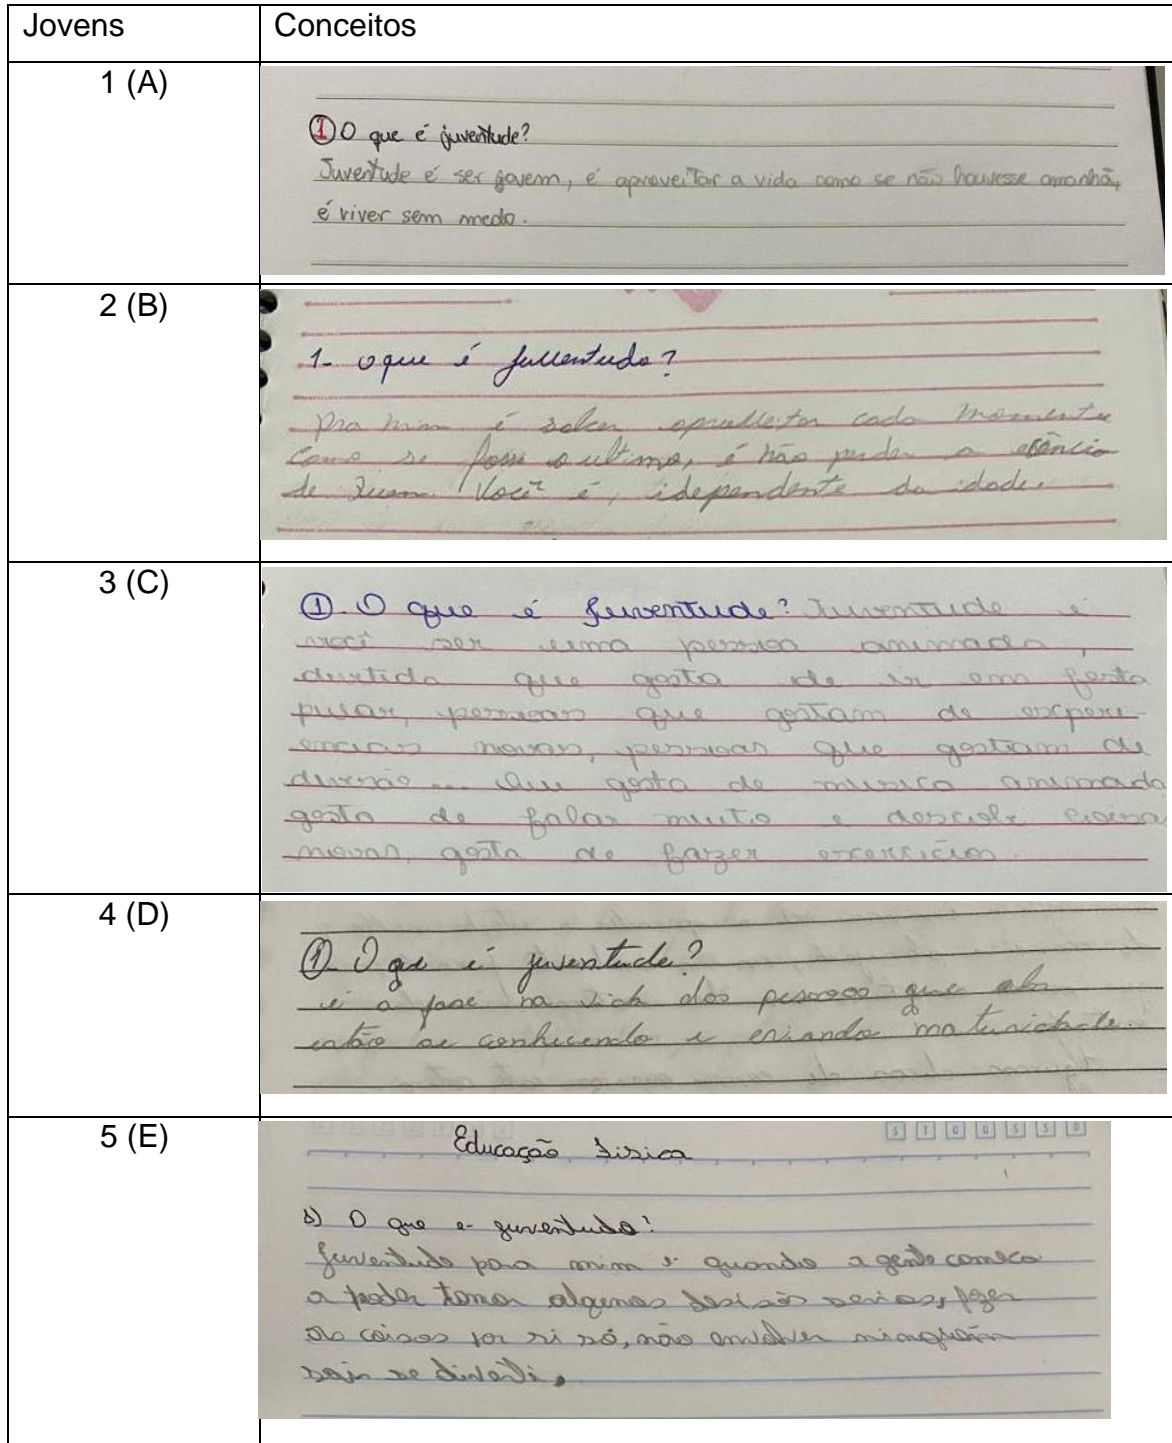 Jovens Conceitos
1 (A)
① O que é juventude?
Juventude é ser jovem, é aproveitar a vida como se não houvesse amanhã,
é viver sem medo.
2 (B)
1- oque é Juventude?
pra mim é saber aproveitar cada momento
como se fosse o ultimo, é não perder a esência
de quem Você é, idependente da idade.
3 (C)
① O que é Juventude? Juventude é
você ser uma pessoa animada,
divertida que gosta de ir em festa
pessoas que gostam de experi-
encias novas, pessoas que gostam de
diversão... Que gosta de musica animada
gosta de falar muito e descobri coisa
novas, gosta de fazer exercicios.
4 (D)
① O que é juventude?
é a fase na vida das pessoas que elas
estão se conhecendo e criando maturidade.
5 (E)
S T Q Q S S D
Educação Física
1) O que e juventude?
Juventude para mim é quando a gente comeca
a poder tomar algumas serias, fazer
as coisas por si só, não envolver ninguém
sair se diverti.